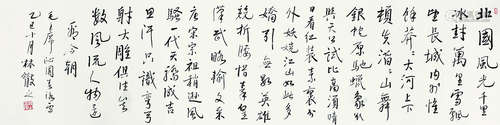 北國風光千里
冰封萬里雪飄
望長城內外惟
餘莽莽大河上下
頓失滔滔山舞
銀蛇原馳蠟象欲
與天公試比高須晴
日看紅裝素裹分
外妖嬈江山如此多
嬌引無數英雄
競折腰惜秦皇
漢武略輸文采
唐宗宋祖稍遜風
騷一代天驕成吉
思汗只識彎弓
射大雕俱往矣
數風流人物還
看今朝
毛主席沁園春詠雪
乙巳十月林散之